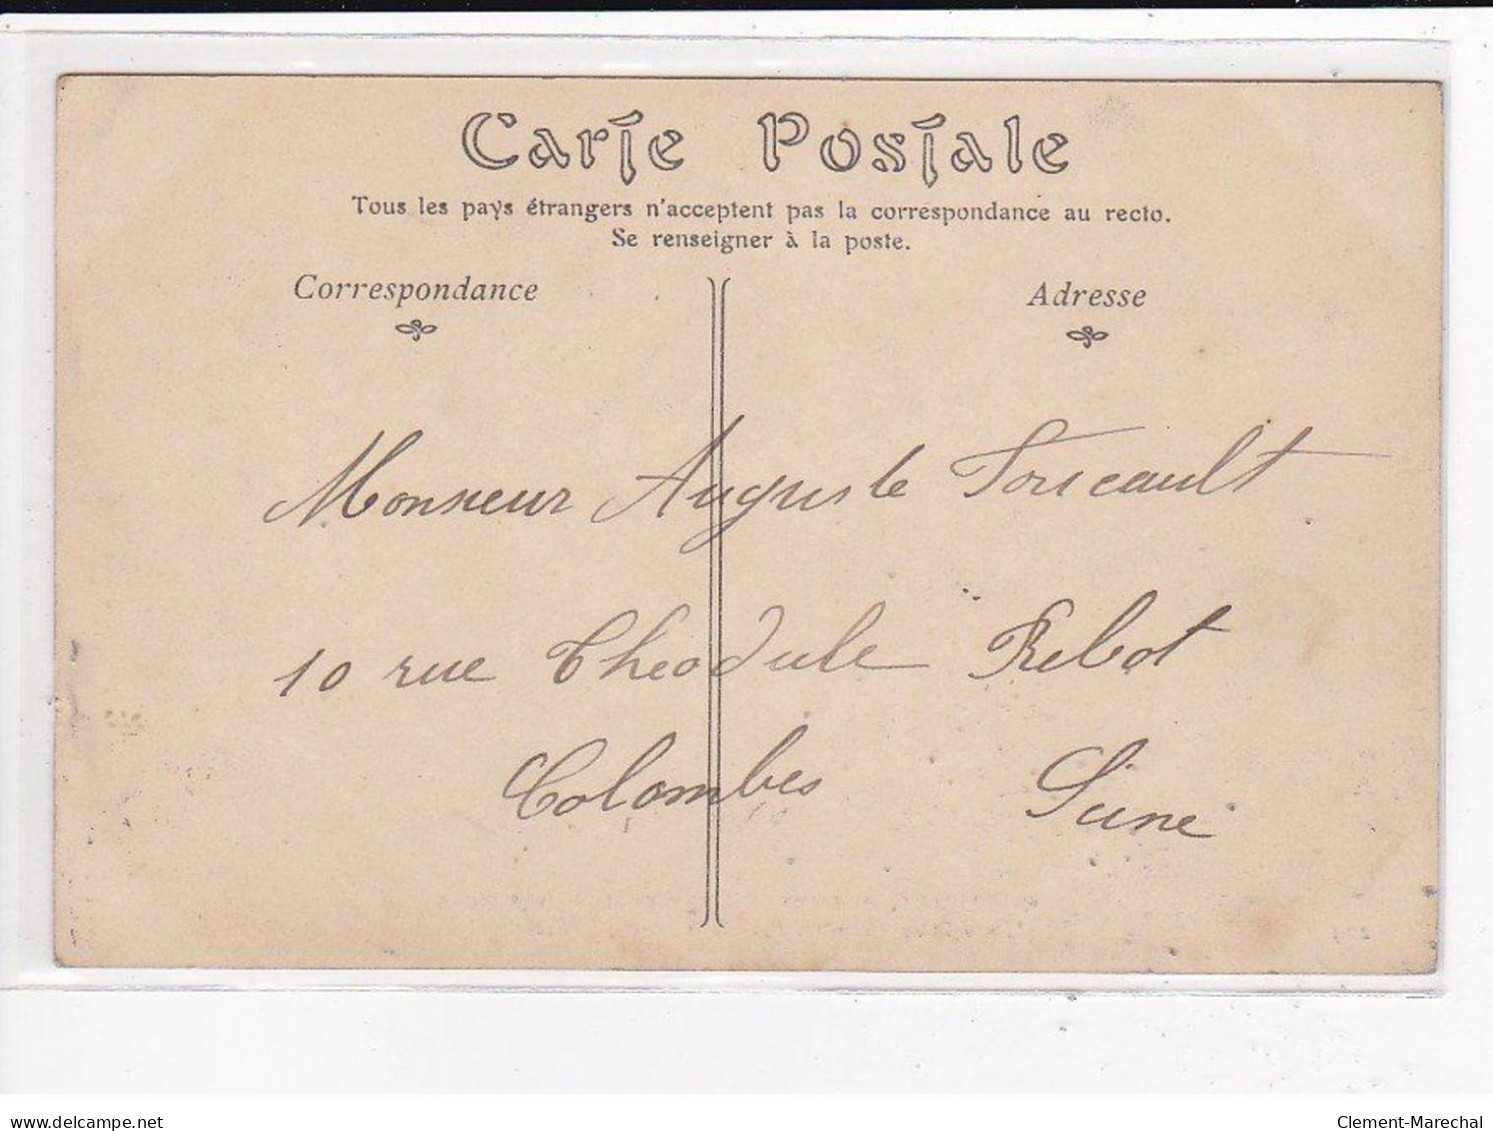 Carte Postale
Tous les pays étrangers n'acceptent pas la correspondance au recto.
Se renseigner à la poste.
Correspondance
Adresse
Monsieur Auguste Foucault
10 rue Theodule Rebot
Colombes Seine
www.delcampe.net
Clement-Marechal